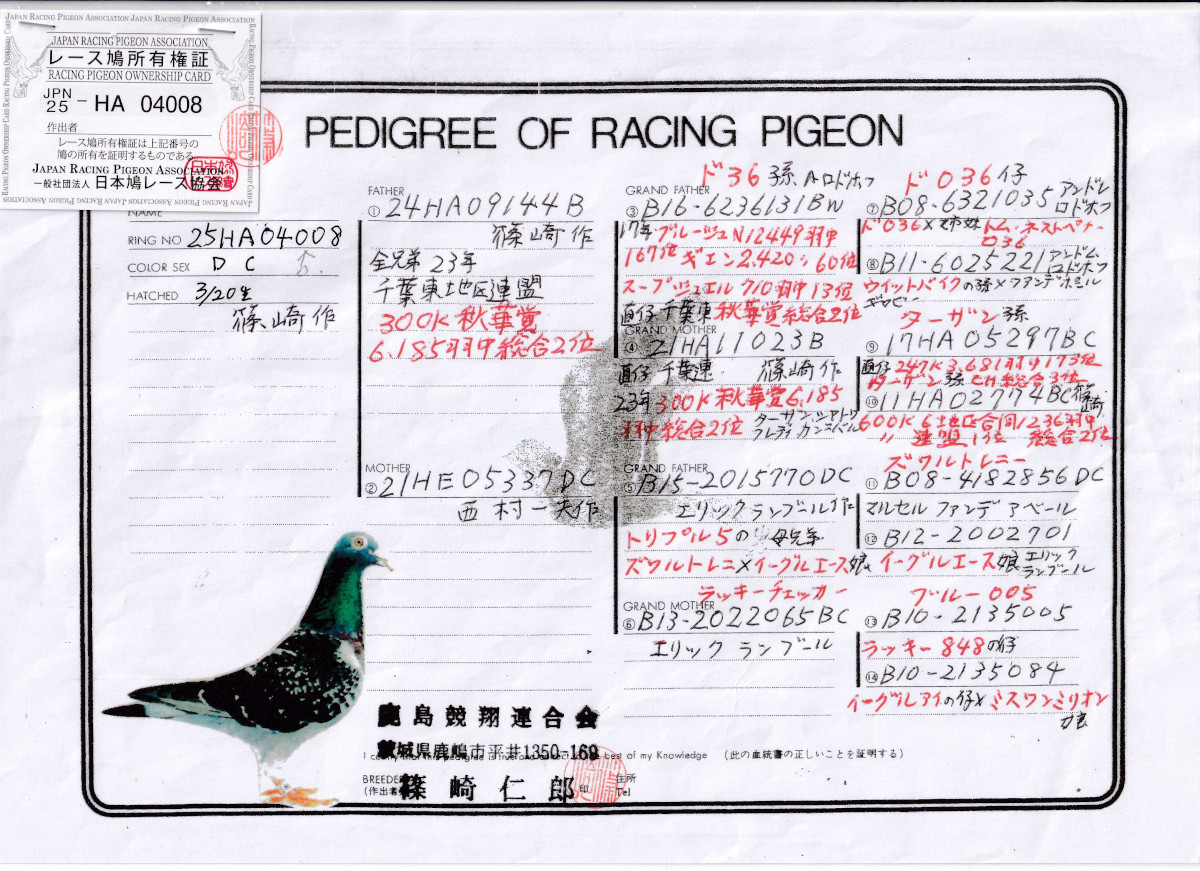 JAPAN RACING PIGEON ASSOCIATION JAPAN RACING PIGEON ASSOCIATION
JAPAN RACING PIGEON ASSOCIATION
レース鳩所有権証
RACING PIGEON OWNERSHIP CARD
JPN
25 - HA 04008
作出者
レース鳩所有権証は上記番号の
鳩の所有を証明するものである
JAPAN RACING PIGEON ASSOCIATION
一般社団法人 日本鳩レース協会
PEDIGREE OF RACING PIGEON
NAME
RING NO 25HA04008
COLOR SEX D C
HATCHED 3/20生
篠崎 作
FATHER
① 24HA09144B
篠崎 作
全兄弟 23年
千葉東地区連盟
300K 秋華賞
6.185羽中総合2位
MOTHER
② 21HE05337DC
西村一夫作
ド36 孫 Aロドホフ
GRAND FATHER
③ B16-6236131BW
17年ブルージュN12449羽中
167位 ギエン2.420〃60位
スープジュエル710羽中13位
直仔 千葉東 秋華賞総合2位
GRAND MOTHER
④ 21HA11023B
直仔 千葉連 篠崎作
23年300K秋華賞6.185
羽中総合2位
GRAND FATHER
⑤ B15-2015770DC
エリックランブール作
トリプル5の 母兄弟
ズワルトレニ×イーグルエース娘
ラッキーチェッカー
GRAND MOTHER
⑥ B13-2022065BC
エリック ランブール
ド036仔
⑦ B08-6321035 アンドレ
ロドホフ
ド036×姉妹 トム.ネストペナ.
036
⑧ B11-6025221 アンドム.
ロドホフ
ウイットバイクの孫×ファンデホミル
ギャビー
ターザン 孫
⑨ 17HA05297BC
直仔 247K3.681羽中173位
ターザン 孫 CH総合3位
⑩ 11HA02774BC 篠崎
600K 6地区合同1236羽中
〃 連盟1位 総合2位
ズワルトレニー
⑪ B08-4182856DC
マルセル ファンデ アベール
⑫ B12-2002701
イーグルエース娘 エリック
ランブール
ブルー005
⑬ B10-2135005
ラッキー848の仔
⑭ B10-2135084
イーグルアイの仔×ミスワンミリオン
娘
鹿島競翔連合会
茨城県鹿嶋市平井1350-169
I certify that this pedigree is true and correct to the best of my Knowledge (此の血統書の正しいことを証明する)
BREEDER
(作出者) 篠崎仁郎 印
住所
Tel